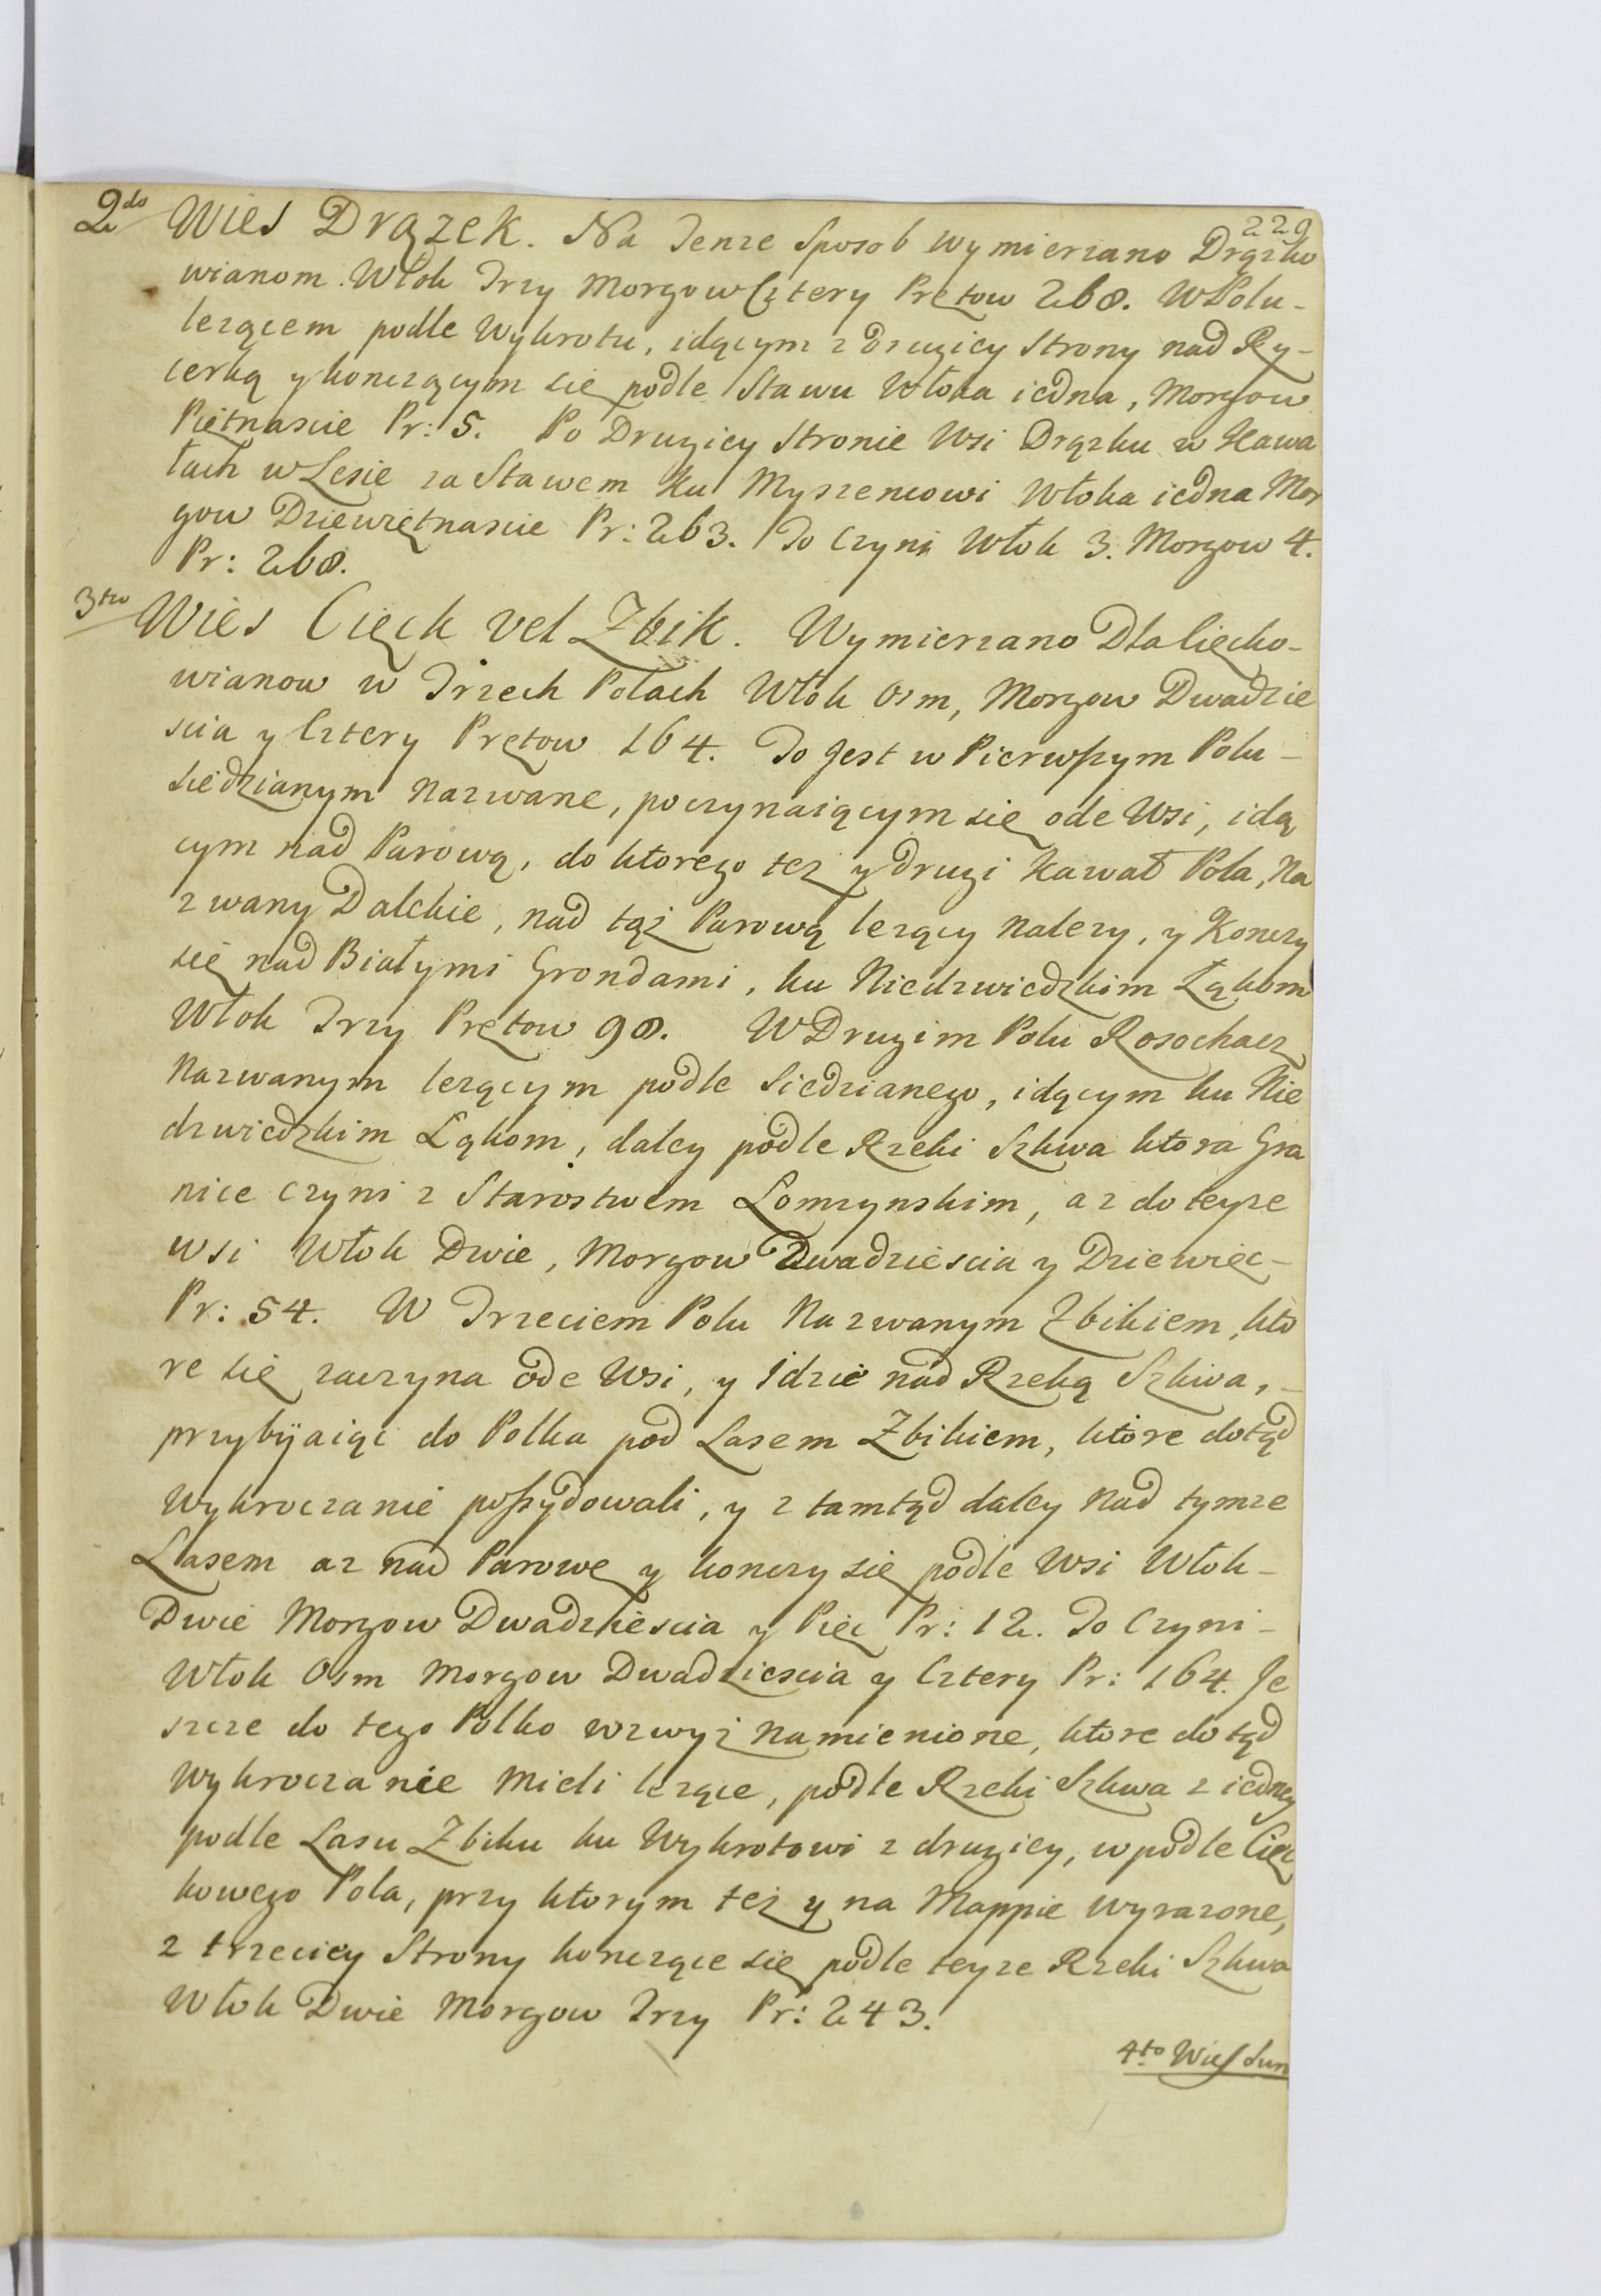 229
2do Wies Drązek. Na Tenze Sposob wymierzano Drązko
wianom. Włok Trzy Morgow Cztery Prętow 268. W Polu-
lezącem podle Wykrotu, idącym z drugiey Strony nad Ry-
cerką y konczącym się podle Stawu Włoka iedna, Morgow
Piętnascie Pr: 5. Po Drugiey Stronie Wsi Drązku w Kawa
łach w Lesie za Stawem ku Myszencowi Włoka iedna Mor
gow Dziewiętnascie Pr: 263. To Czyni Włok 3. Morgow 4.
Pr: 268.
3tio Wies Cięck vel Zbik. Wymierzano Dla Cięcko-
wianow w Trzech Polach Włok Osm, Morgow Dwadzie
scia y Cztery Prętow 164. To Jest w Pierwszym Polu-
siedzianym nazwane, poczynaiącym się ode Wsi, idą
cym nad Parową, do ktorego tez y drugi kawał Pola, Na
zwany Dalekie, nad tąż Parową lezący nalezy, y Konczy
się nad Białymi Grondami, ku Niedzwiedzkim Łąkom
Włok Trzy Prętow 98. W Drugim Polu Rosochacz
Nazwanym lezącym podle Siedzianego, idącym ku Nie
dzwiedzkim Łąkom, daley podle Rzeki Szkwa ktora Gra
nice czyni z Starostwem Łomzynskim, az do teyze
wsi Włok Dwie, Morgow Dwadziescia y Dziewięc-
Pr: 54. W Trzeciem Polu Nazwanym Zbikiem, kto
re się zaczyna ode Wsi, y Idzie nad Rzeką Szkwa,-
przybijaiąc do Polka pod Lasem Zbikiem, ktore dotąd
Wykroczanie possydowali, y z tamtąd daley nad tymze
Lasem az nad Parowę y konczy się podle Wsi Włok-
Dwie Morgow Dwadziescia y Pięc Pr: 12. To Czyni-
Włok Osm Morgow Dwadziescia y Cztery Pr: 164. Je
szcze do tego Polko wzwyż namienione, ktore dotąd
Wykroczanie mieli lezące, podle Rzeki Szkwa z iedney
podle Lasu Zbiku ku Wykrotowi z drugiey, w podle Cięc
kowego Pola, przy ktorym też y na Mappie wyrazone,
z trzeciey Strony konczące się podle teyze Rzeki Szkwa
Włok Dwie Morgow Trzy Pr: 243.
4to Wies